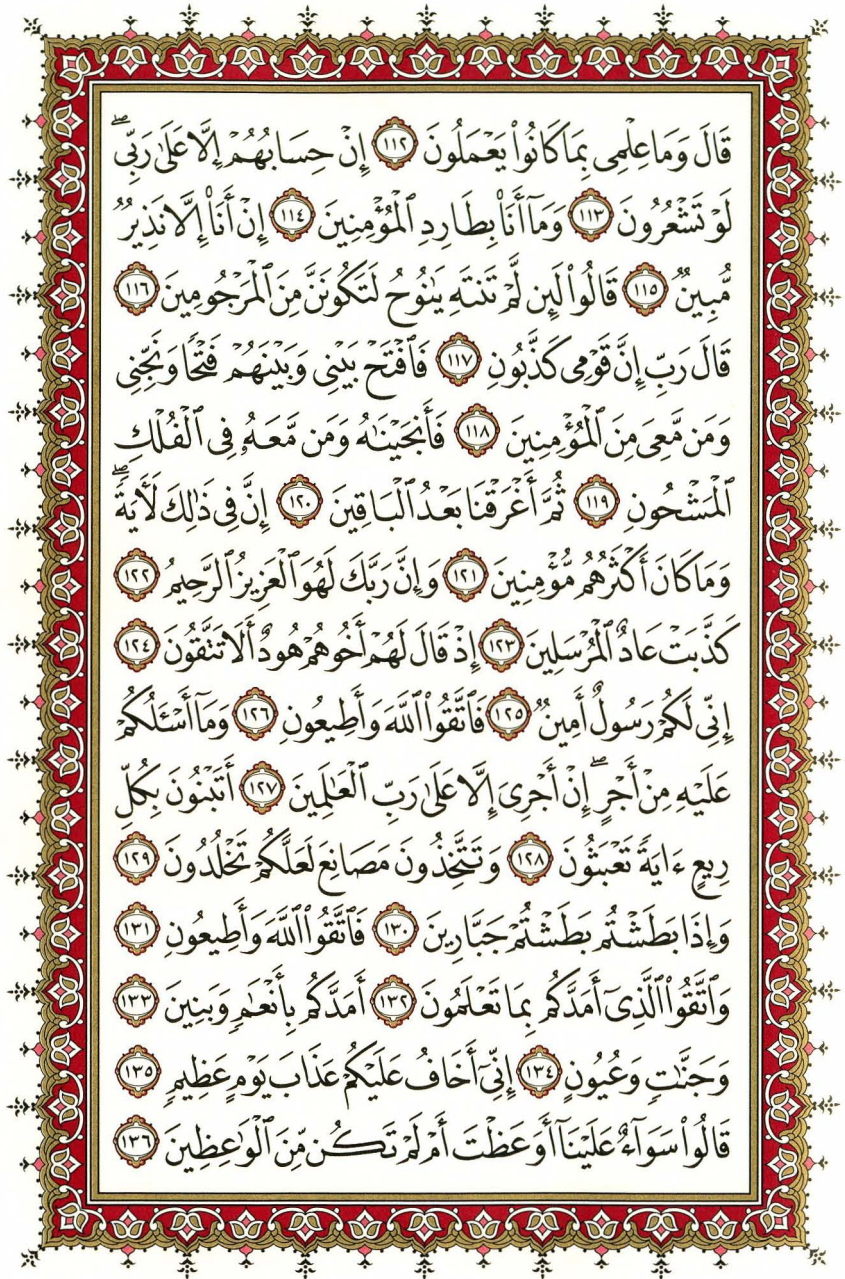 قَالَ وَمَا عِلْمِى بِمَا كَانُوا۟ يَعْمَلُونَ ١١٢ إِنْ حِسَابُهُمْ إِلَّا عَلَىٰ رَبِّى ۖ
لَوْ تَشْعُرُونَ ١١٣ وَمَآ أَنَا۠ بِطَارِدِ ٱلْمُؤْمِنِينَ ١١٤ إِنْ أَنَا۠ إِلَّا نَذِيرٌ
مُّبِينٌ ١١٥ قَالُوا۟ لَئِن لَّمْ تَنتَهِ يَٰنُوحُ لَتَكُونَنَّ مِنَ ٱلْمَرْجُومِينَ ١١٦
قَالَ رَبِّ إِنَّ قَوْمِى كَذَّبُونِ ١١٧ فَٱفْتَحْ بَيْنِى وَبَيْنَهُمْ فَتْحًا وَنَجِّنِى
وَمَن مَّعِىَ مِنَ ٱلْمُؤْمِنِينَ ١١٨ فَأَنجَيْنَٰهُ وَمَن مَّعَهُۥ فِى ٱلْفُلْكِ
ٱلْمَشْحُونِ ١١٩ ثُمَّ أَغْرَقْنَا بَعْدُ ٱلْبَاقِينَ ١٢٠ إِنَّ فِى ذَٰلِكَ لَءَايَةً ۖ
وَمَا كَانَ أَكْثَرُهُم مُّؤْمِنِينَ ١٢١ وَإِنَّ رَبَّكَ لَهُوَ ٱلْعَزِيزُ ٱلرَّحِيمُ ١٢٢
كَذَّبَتْ عَادٌ ٱلْمُرْسَلِينَ ١٢٣ إِذْ قَالَ لَهُمْ أَخُوهُمْ هُودٌ أَلَا تَتَّقُونَ ١٢٤
إِنِّى لَكُمْ رَسُولٌ أَمِينٌ ١٢٥ فَٱتَّقُوا۟ ٱللَّهَ وَأَطِيعُونِ ١٢٦ وَمَآ أَسْـَٔلُكُمْ
عَلَيْهِ مِنْ أَجْرٍ ۖ إِنْ أَجْرِىَ إِلَّا عَلَىٰ رَبِّ ٱلْعَٰلَمِينَ ١٢٧ أَتَبْنُونَ بِكُلِّ
رِيعٍ ءَايَةً تَعْبَثُونَ ١٢٨ وَتَتَّخِذُونَ مَصَانِعَ لَعَلَّكُمْ تَخْلُدُونَ ١٢٩
وَإِذَا بَطَشْتُم بَطَشْتُمْ جَبَّارِينَ ١٣٠ فَٱتَّقُوا۟ ٱللَّهَ وَأَطِيعُونِ ١٣١
وَٱتَّقُوا۟ ٱلَّذِىٓ أَمَدَّكُم بِمَا تَعْلَمُونَ ١٣٢ أَمَدَّكُم بِأَنْعَٰمٍ وَبَنِينَ ١٣٣
وَجَنَّٰتٍ وَعُيُونٍ ١٣٤ إِنِّىٓ أَخَافُ عَلَيْكُمْ عَذَابَ يَوْمٍ عَظِيمٍ ١٣٥
قَالُوا۟ سَوَآءٌ عَلَيْنَآ أَوَعَظْتَ أَمْ لَمْ تَكُن مِّنَ ٱلْوَٰعِظِينَ ١٣٦